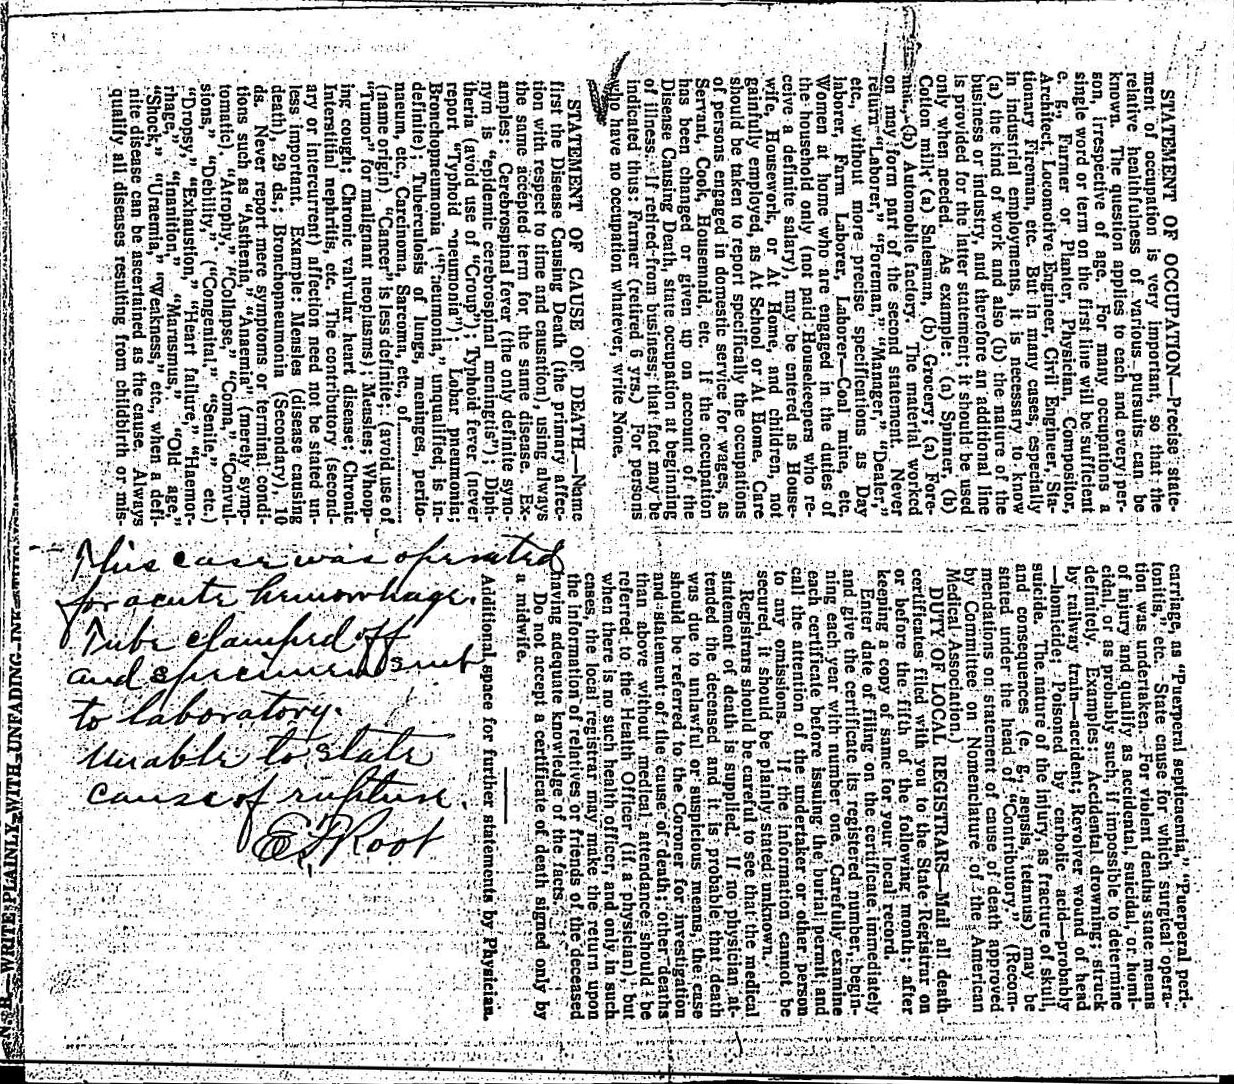 STATEMENT OF OCCUPATION—Precise state-
ment of occupation is very important, so that the
relative healthfulness of various pursuits can be
known. The question applies to each and every per-
son, irrespective of age. For many occupations a
single word or term on the first line will be sufficient
e. g., Farmer or Planter, Physician, Compositor,
Architect, Locomotive Engineer, Civil Engineer, Sta-
tionary Fireman, etc. But in many cases, especially
in industrial employments, it is necessary to know
(a) the kind of work and also (b) the nature of the
business or industry, and therefore an additional line
is provided for the latter statement; it should be used
only when needed. As example: (a) Spinner, (b)
Cotton mill; (a) Salesmann, (b) Grocery; (a) Fore-
man, (b) Automobile factory. The material worked
on may form part of the second statement. Never
return "Laborer," "Foreman," "Manager," "Dealer,"
etc., without more precise specifications as Day
laborer, Farm Laborer, Laborer—Coal mine, etc.
Women at home who are engaged in the duties of
the household only (not paid Housekeepers who re-
ceive a definite salary), may be entered as House-
wife, Housework, or At Home, and children, not
gainfully employed, as At School or At Home. Care
should be taken to report specifically the occupations
of persons engaged in domestic service for wages, as
Servant, Cook, Housemaid, etc. If the occupation
has been changed or given up on account of the
Disease Causing Death, state occupation at beginning
of illness. If retired from business, that fact may be
indicated thus: Farmer (retired 6 yrs.) For persons
who have no occupation whatever, write None.
STATEMENT OF CAUSE OF DEATH.—Name
first the Disease Causing Death (the primary affec-
tion with respect to time and causation), using always
the same accepted term for the same disease. Ex-
amples: Cerebrospinal fever (the only definite syno-
nym is "epidemic cerebrospinal meningtis"); Diph-
theria (avoid use of "Croup"); Typhoid fever (never
report "Typhoid pneumonia"); Lobar pneumonia;
Bronchopneumonia ("Pneumonia," unqualified, is in-
definite); Tuberculosis of lungs, meninges, perito-
naeum, etc., Carcinoma, Sarcoma, etc., of
(name origin) "Cancer" is less definite; (avoid use of
"Tumor" for malignant neoplasms); Measles; Whoop-
ing cough; Chronic valvular heart disease; Chronic
Interstitial nephritis, etc. The contributory (second-
ary or intercurrent) affection need not be stated un-
less important. Example: Measles (disease causing
death), 29 ds.; Bronchopneumonia (Secondary), 10
ds. Never report mere symptoms or terminal condi-
tions such as "Asthenia," "Anaemia" (merely symp-
tomatic), "Atrophy," "Collapse," "Coma," "Convul-
sions," "Debility," ("Congenital," "Senile," etc.)
"Dropsy," "Exhaustion," "Heart failure," "Haemor-
rhage," "Inanition," "Marasmus," "Old age,"
"Shock," "Uraemia," "Weakness," etc., when a defi-
nite disease can be ascertained as the cause. Always
qualify all diseases resulting from childbirth or mis-
carriage, as "Puerperal septicaemia," "Puerperal peri-
tonitis," etc. State cause for which surgical opera-
tion was undertaken. For violent deaths state means
of injury and qualify as accidental, suicidal, or homi-
cidal, or as probably such, if impossible to determine
definitely. Examples: Accidental drowning; struck
by railway train—accident; Revolver wound of head
—homicide; Poisoned by carbolic acid—probably
suicide. The nature of the injury, as fracture of skull,
and consequences (e. g., sepsis, tetanus) may be
stated under the head of "Contributory." (Recom-
mendations on statement of cause of death approved
by Committee on Nomenclature of the American
Medical Association.)
DUTY OF LOCAL REGISTRARS—Mail all death
certificates filed with you to the State Registrar on
or before the fifth of the following month; after
keeping a copy of same for your local record.
Enter date of filing on the certificate immediately
and give the certificate its registered number, begin-
ning each year with number one. Carefully examine
each certificate before issuing the burial permit and
call the attention of the undertaker or other person
to any omissions. If the information cannot be
secured, it should be plainly stated unknown.
Registrars should be careful to see that the medical
statement of death is supplied. If no physician at-
tended the deceased and it is probable that death
was due to unlawful or suspicious means, the case
should be referred to the Coroner for investigation
and statement of the cause of death; other deaths
than above without medical attendance should be
referred to the Health Officer (if a physician), but
when there is no such health officer, and only in such
cases, the local registrar may make the return upon
the information of relatives or friends of the deceased
having adequate knowledge of the facts.
Do not accept a certificate of death signed only by
a midwife.
Additional space for further statements by Physician.
This case was operated
for acute hemorrhage.
Tube clamped off
and specimen sent
to laboratory.
Unable to state
cause of rupture.
E F Root
N. B.—WRITE PLAINLY WITH UNFADING INK